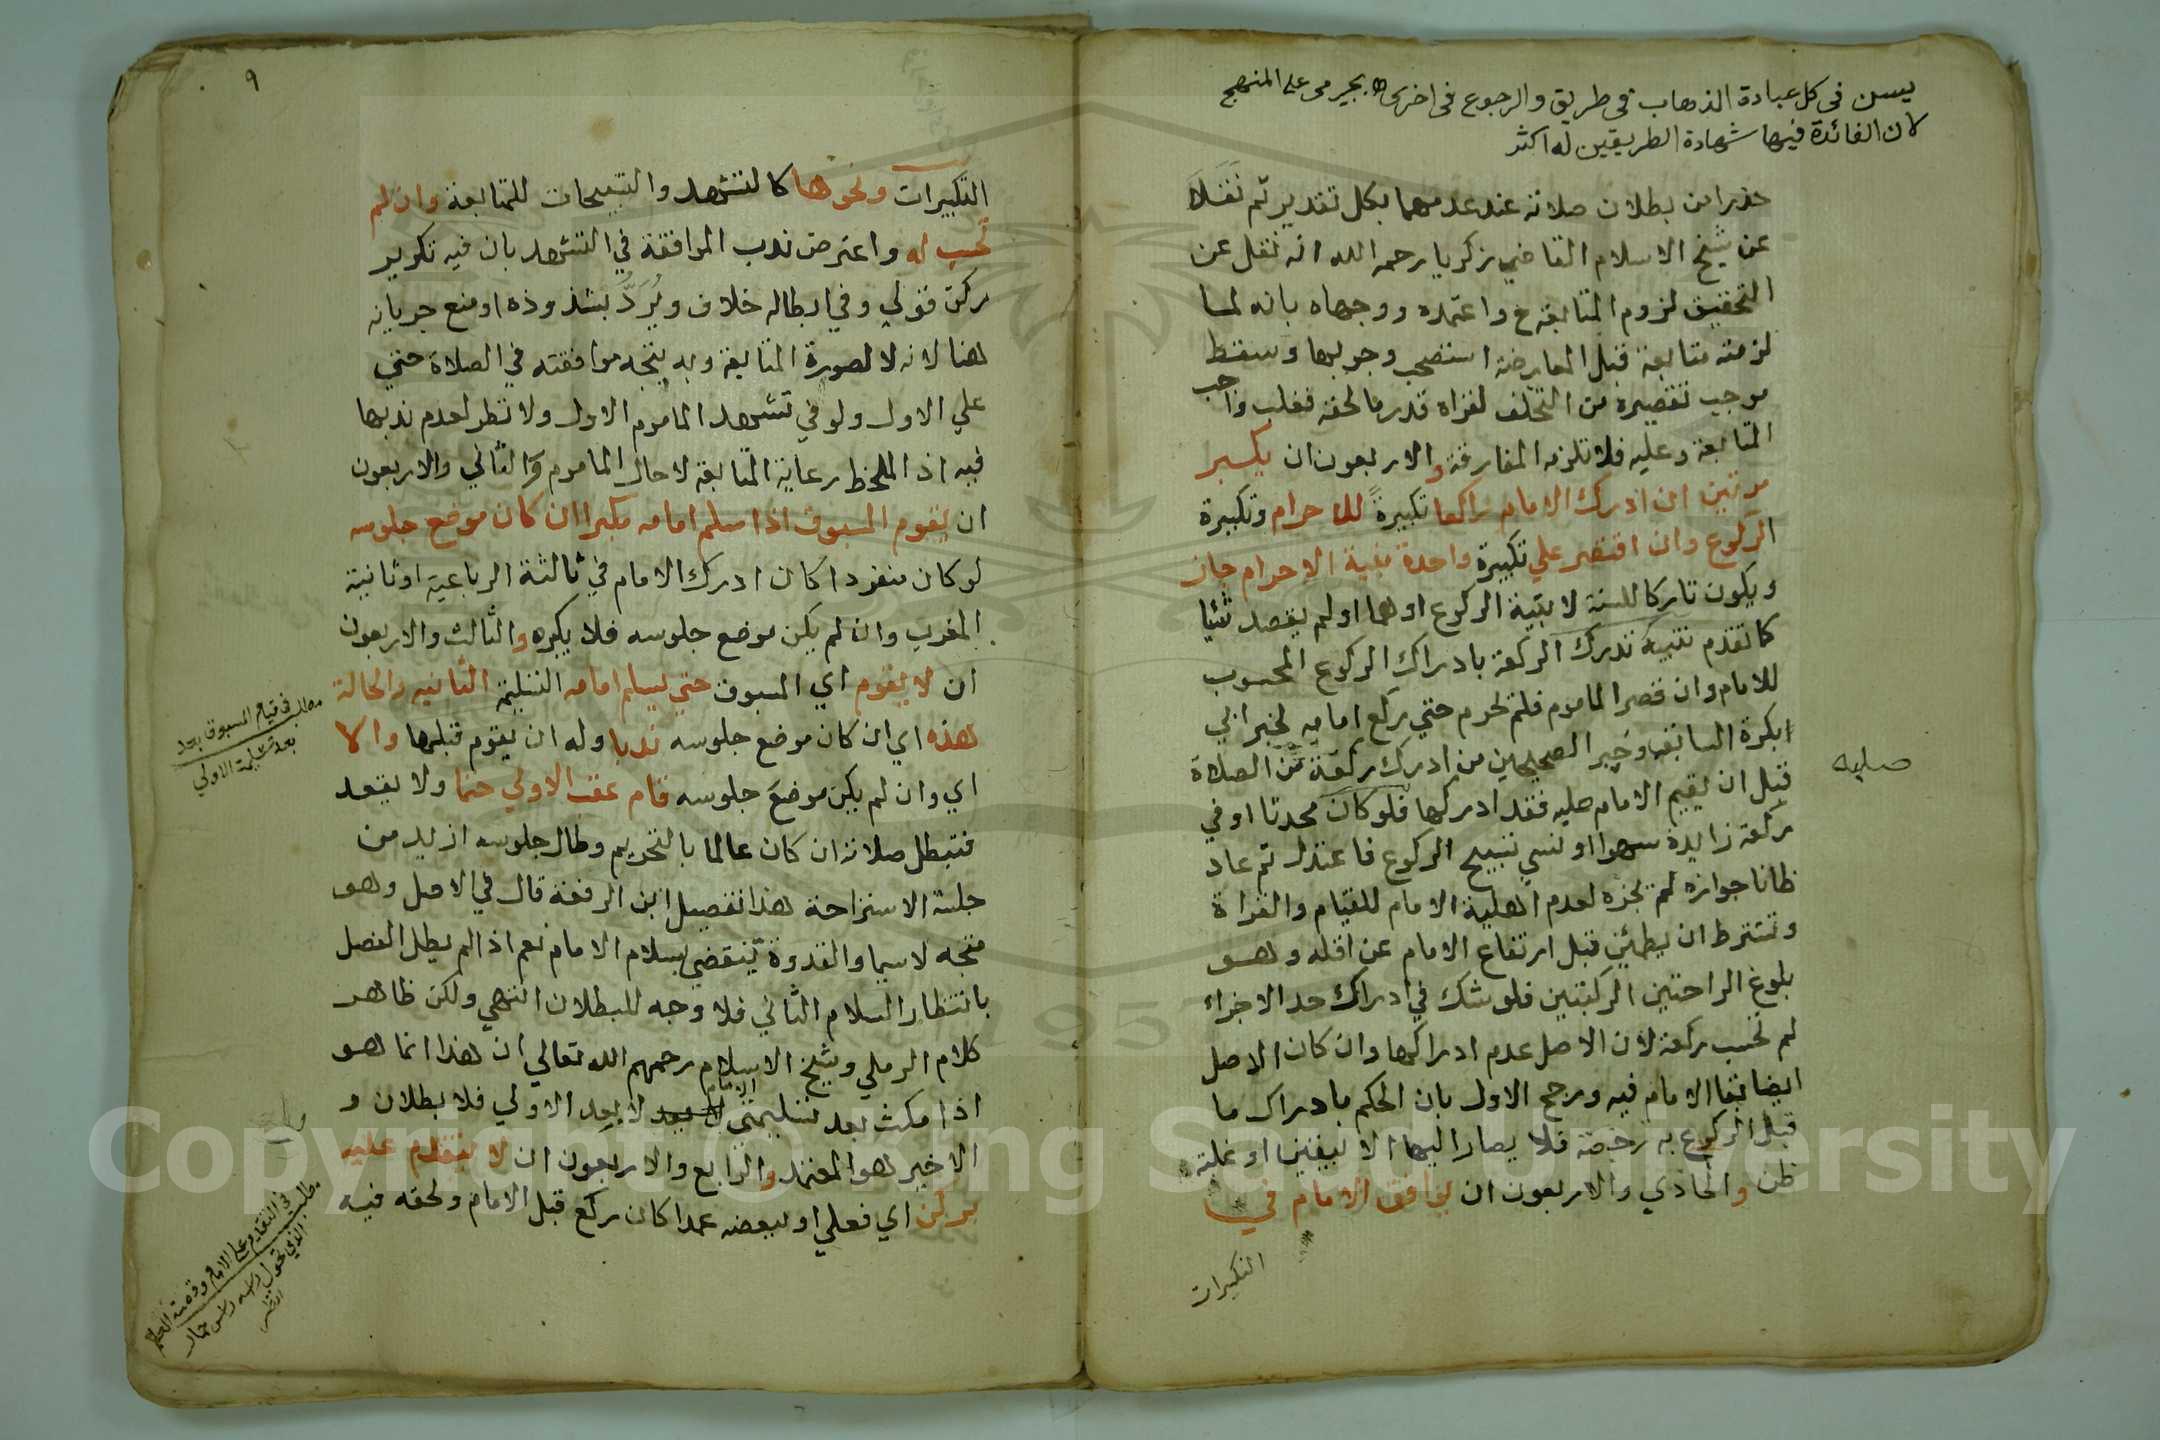 يسن في كل عبادة الذهاب في طريق والرجوع في اخرى اه بجيرمى على المنهج
لان الفائدة فيها شهادة الطريقين له اكثر
حذرا من بطلان صلاته عند عدمهما بكل تقدير ثم نقلا
عن شيخ الاسلام القاضي زكريا رحمه الله انه نقل عن
التحقيق لزوم المتابعة ح واعتمده ووجهاه بانه لما
لزمته متابعة قبل المعارضة استصحب وجوبها وسقط
موجب تقصيره من التخلف لقراة قدر ما لحقه فغلب واجب
المتابعة وعليه فلا تلزمه المفارقة والاربعون ان يكبر
مرتين ان ادرك الامام راكعا تكبيرةً للاحرام وتكبيرة
الركوع وان اقتصر علي تكبيرة واحدة بنية الاحرام جاز
ويكون تاركا للسنة لا بنية الركوع او لهما او لم يقصد شيا
كما تقدم تنبيه تدرك الركعة بادراك الركوع المحسوب
للامام وان قصر الماموم فلم يحرم حتي ركع امامه لخبر ابي
ابكرة السابق وخبر الصحيحين من ادرك ركعة من الصلاة
قبل ان يقيم الامام صلبه فقد ادركها فلو كان محدثا او في
صلبه
ركعة زايدة سهوا او نسي تسبيح الركوع فاعتدل ثم عاد
ظانا جوازه لم يجزه لعدم اهلية الامام للقيام والقراة
وتشترط ان يطمئن قبل ارتفاع الامام عن اقله وهو
بلوغ الراحتين الركبتين فلو شك في ادراك حد الاجزاء
لم تحسب ركعة لان الاصل عدم ادراكها وان كان الاصل
ايضا بقا الامام فيه ورجح الاول بان الحكم بادراك ما
قبل الركوع به رخصة فلا يصار اليها الا بيقين او غلبة
ظن والحادي والاربعون ان يوافق الامام في
التكبيرات
٩
التكبيرات ونحوها كالتشهد والتسبيحات للمتابعة وان لم
تحسب له واعترض ندب الموافقة في التشهد بان فيه تكرير
ركن قولي وفي ابطاله خلاف ويُرَدُّ بشذوذه او منع جريانه
هنا لانه لالصورة المتابعة وبه يتجه موافقته في الصلاة حتي
علي الاول ولو في تشهد الماموم الاول ولا نظر لعدم ندبها
فيه اذ الملحظ رعاية المتابعة لا حال الماموم والثاني والاربعون
ان يقوم المسبوق اذا سلم امامه مكبرا ان كان موضع جلوسه
لو كان منفردا كان ادرك الامام في ثالثة الرباعية او ثانية
المغرب وان لم يكن موضع جلوسه فلا يكبره والثالث والاربعون
ان لا يقوم اي المسبوق حتي يسلم امامه التسليمة الثانيه والحالة
هذه اي ان كان موضع جلوسه ندبا وله ان يقوم قبلها والا
مطلب في قيام المسبوق بعد
بعد تسليمة الاولي
اي وان لم يكن موضعَ جلوسه قام عقب الاولي حتما ولا يقعد
فتبطل صلاته ان كان عالما بالتحريم وطال جلوسه ازيد من
جلسة الاستراحة هذا تفصيل ابن الرفعة قال في الاصل وهو
متجه لاسيما والقدوة تنقضي بسلام الامام نعم اذا لم يطل الفصل
بانتظار السلام الثاني فلا وجه للبطلان انتهي ولكن ظاهر
كلام الرملي وشيخ الاسلام رحمهم الله تعالي ان هذا انما هو
اذا مكث بعد تسليمتي الامام لا بعد الاولي فلا بطلان و
الاخير هو المعتمد والرابع والاربعون ان لا يتقدم عليه
بركن اي فعلي او ببعضه عمدا كان ركع قبل الامام ولحقه فيه
مطلب في التقدم على الامام وقصة
الذي تحول راسه راس حمار
انظر
Copyright © King Saud University
1957